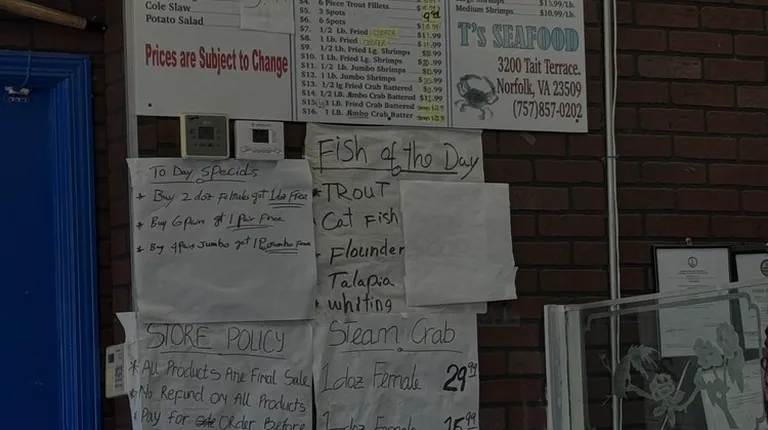 Cole Slaw
Potato Salad
Prices are Subject to Change
S4. 6 Piece Trout Fillets
S5. 3 Spots
S6. 6 Spots
S7. 1/2 Lb. Fried
S8. 1 Lb. Fried
S9. 1/2 Lb. Fried Lg. Shrimps
S10. 1 Lb. Fried Lg. Shrimps
S11. 1/2 Lb. Jumbo Shrimps
S12. 1 Lb. Jumbo Shrimps
S13. 1/2 lg Fried Crab Battered
S14. 1/2 Lb. Jimbo Crab Battered
S15. 1 Lb. Fried Crab Battered
S16. 1 Lb. Jimbo Crab Batter
$15.99/Lb.
Medium Shrimps $10.99/Lb.
T's SEAFOOD
3200 Tait Terrace.
Norfolk, VA 23509
(757)857-0202
To Day Specials
* Buy 2 doz Females get 1 doz Free
* Buy 6 pairs gt 1 Pair Free
* Buy 4 Pairs Jumbo get 1 P Jumbo Free
Fish of the Day
* TROUT
Cat Fish
Flounder
Talapia
whiting
STORE POLICY
* All Products Are Final Sale
No Refund On All Products
Pay for Order Before
Steam Crab
1 doz Female 29.99
1 doz Female